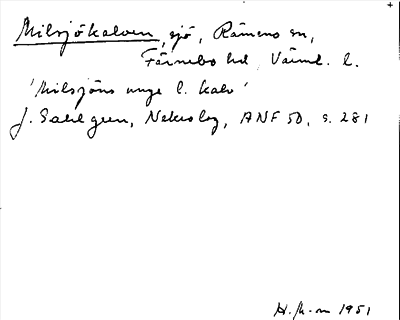 Milsjökalven, sjö, Rämens sn,
Färnebo hd, Värml. l.
'Milsjöns unge l. kalv'
J. Sahlgren, Nekrolog, ANF 50, s. 281
H. M-m 1951